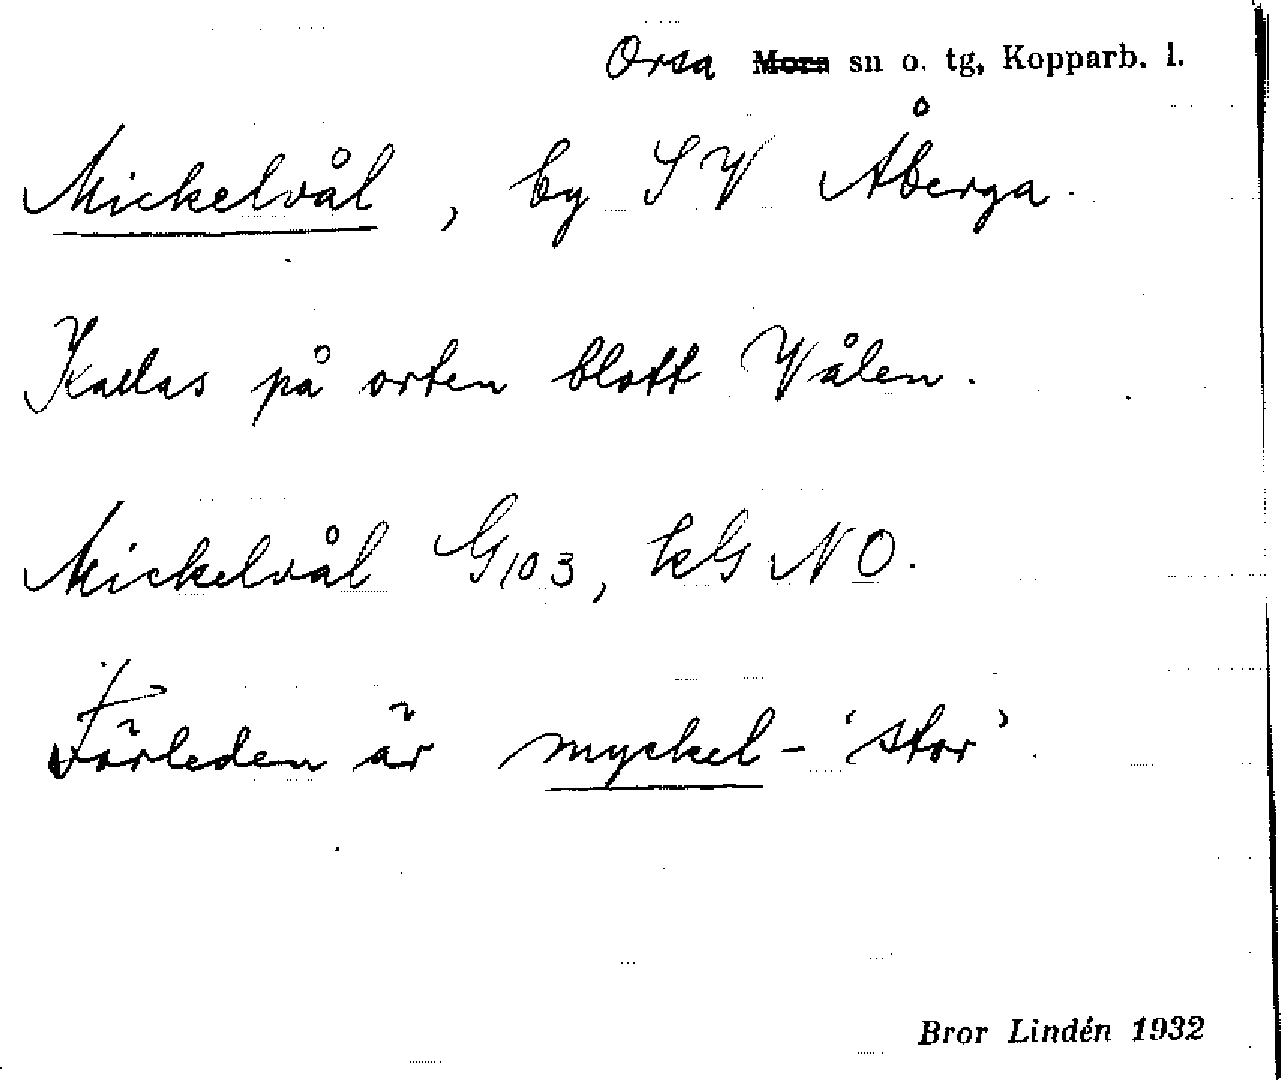 Orsa Mora sn o. tg, Kopparb. l.
Mickelvål, by SV Åberga.
Kallas på orten blott Vålen.
Mickelvål G 103, kG NO.
Förleden är myckel- 'stor'.
Bror Lindén 1932